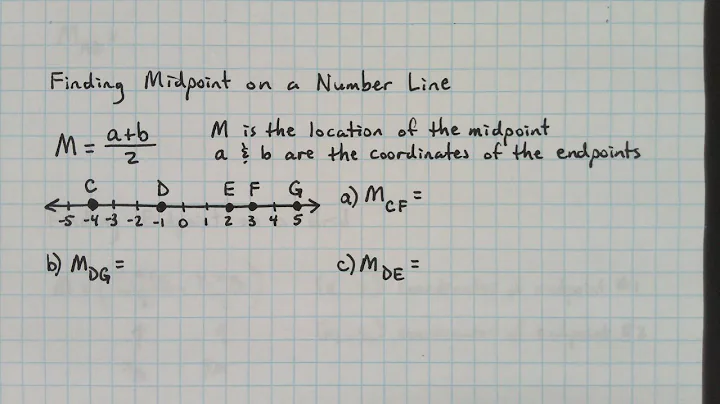 Finding Midpoint on a Number Line
M = a+b/2 M is the location of the midpoint
a & b are the coordinates of the endpoints
C D E F G
-5 -4 -3 -2 -1 0 1 2 3 4 5
a) M_CF =
b) M_DG =
c) M_DE =